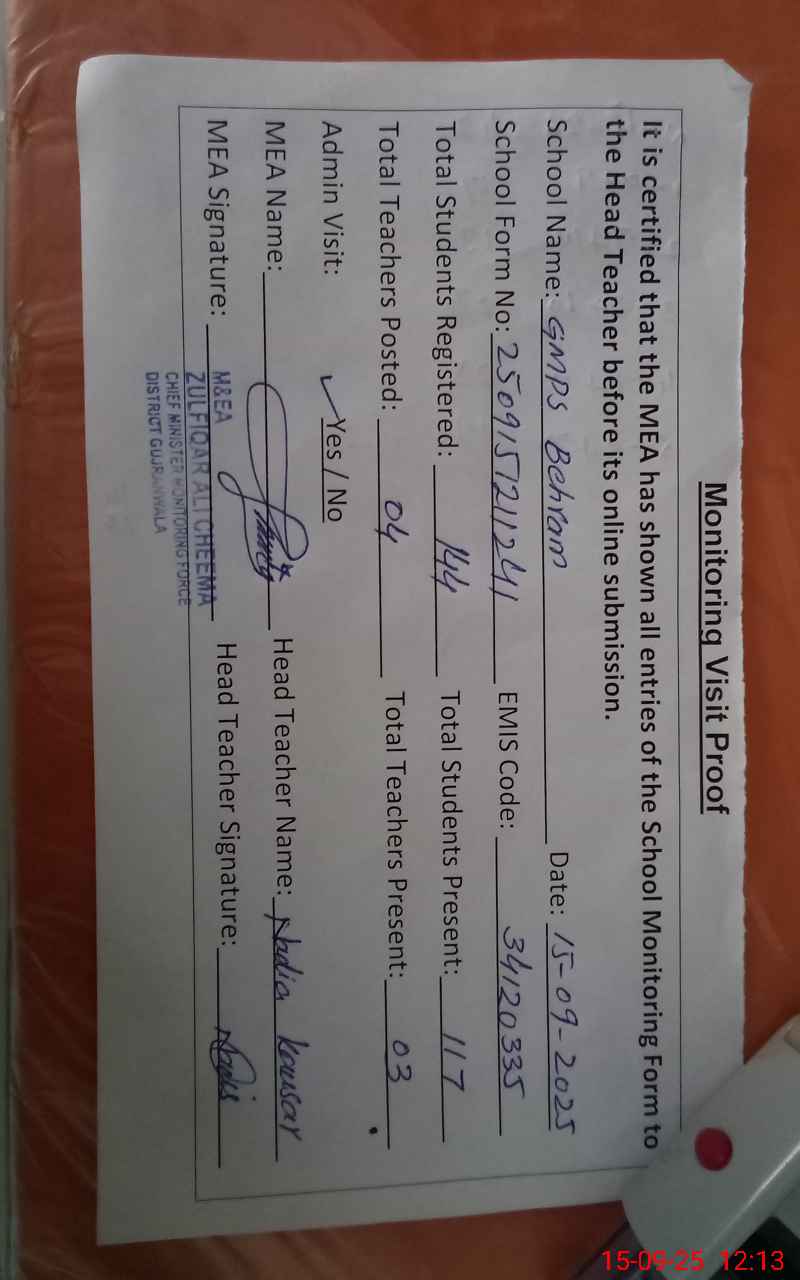 Monitoring Visit Proof
It is certified that the MEA has shown all entries of the School Monitoring Form to
the Head Teacher before its online submission.
School Name: GMPS Behram Date: 15-09-2025
School Form No: 2509151211241 EMIS Code: 34120335
Total Students Registered: 144 Total Students Present: 117
Total Teachers Posted: 04 Total Teachers Present: 03
Admin Visit: ✓Yes / No
MEA Name: Head Teacher Name: Nadia kousar
MEA Signature: Head Teacher Signature: Nadia
M&EA
ZULFIQAR ALI CHEEMA
CHIEF MINISTER MONITORING FORCE
DISTRICT GUJRANWALA
15-09-25 12:13